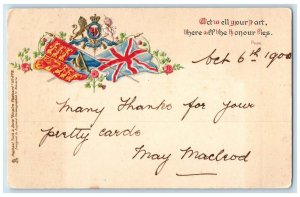 Act well your part,
there all the honour lies.
Pope.
Oct 6th 1900
Many Thanks for your
pretty cards
May Macleod